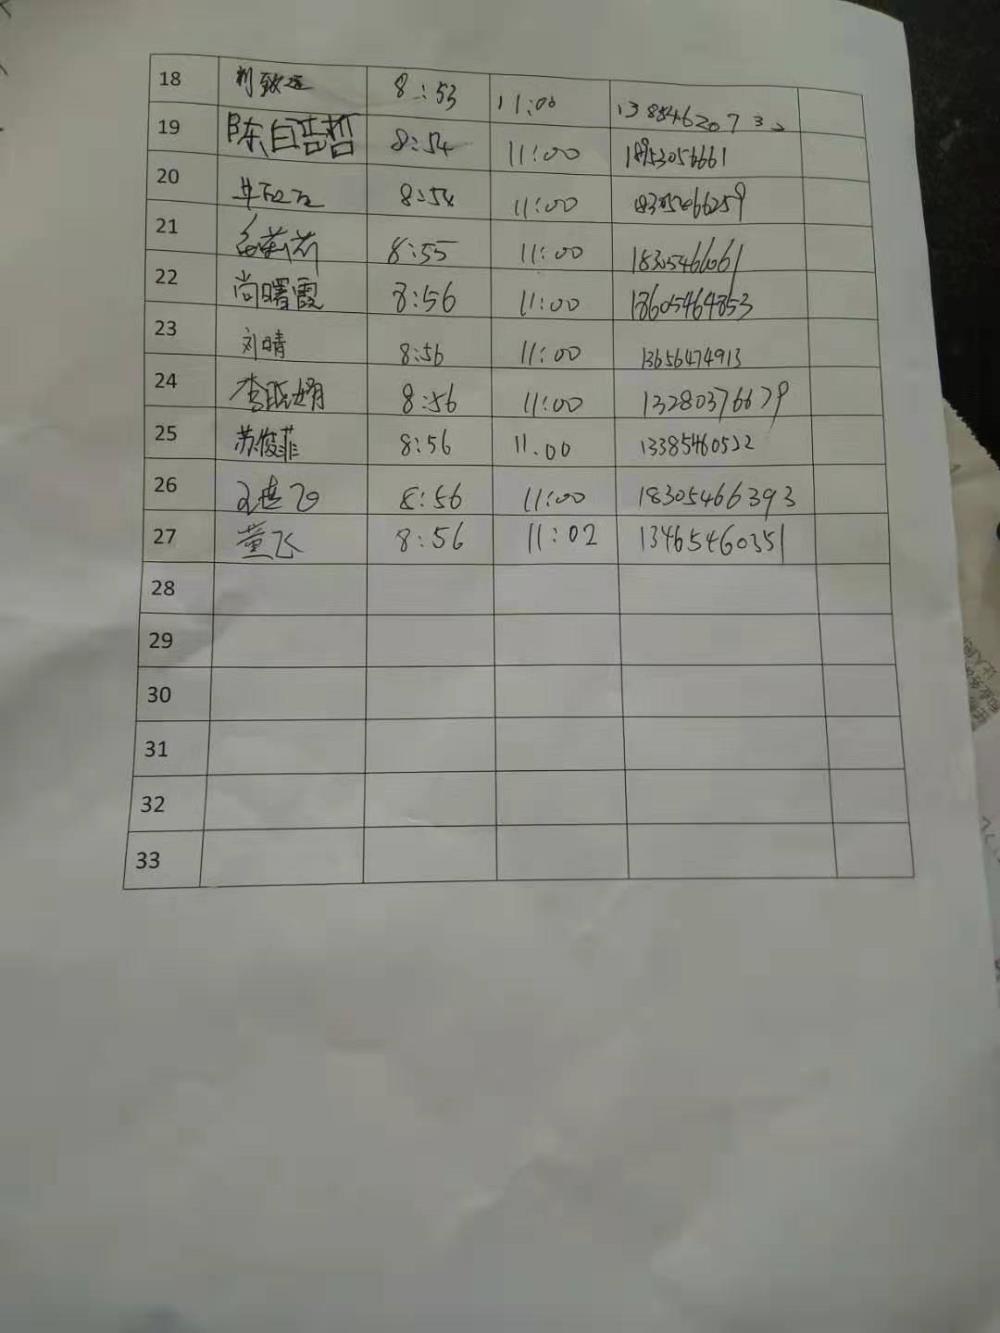 18 刘致远 8:53 11:00
19 陈白哲 8:54 11:00 18953056661
20 8:54 11:00
21 8:55 11:00 18305466061
22 尚曙霞 8:56 11:00 18605464853
23 刘晴 8:56 11:00 13656474913
24 李晓娟 8:56 11:00 13280376679
25 苏俊菲 8:56 11.00 13385460522
26 8:56 11:00 18305466393
27 董飞 8:56 11:02 13465460351
28
29
30
31
32
33